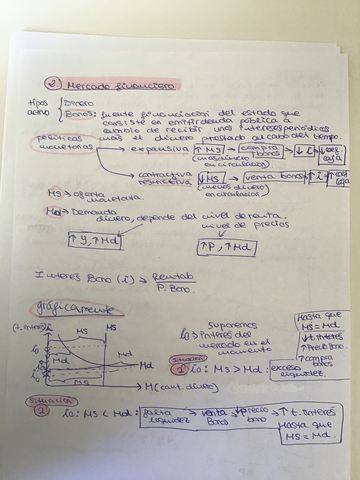 ② Mercado financiero
tipos activo { Dinero
Bonos: fuente financiacion del estado que
consiste en emitir deuda pública a
cambio de recibir unos intereses periódicos
más el dinero prestado al cabo del tiempo.
políticas monetarias → expansiva ↑ MS → compra bonos → ↓ i →
(mas dinero en circulación)
contractiva restrictiva ↓ MS → venta bonos → ↑ i →
(menos dinero en circulación)
MS → oferta monetaria.
Md → Demanda dinero, depende del nivel de renta.
nivel de precios
↑ Y, ↑ Md
↑ P, ↑ Md
Interes Bono (i) → Rentab / P. Bono
gráficamente
(t. interes) i
MS MS
Md
Md
MS
M (cant. dinero)
Suponemos
i₀ → interes del mercado en el momento
situacion 1 i₀: MS > Md: exceso liquidez.
Hasta que
MS = Md
↓ t. interes
↑ Precio Bono.
↑ compra bonos
Situación 2 i₀: MS < Md: falta liquidez → venta Bonos → ↓ precio bono → ↑ t. interes
Hasta que
MS = Md.